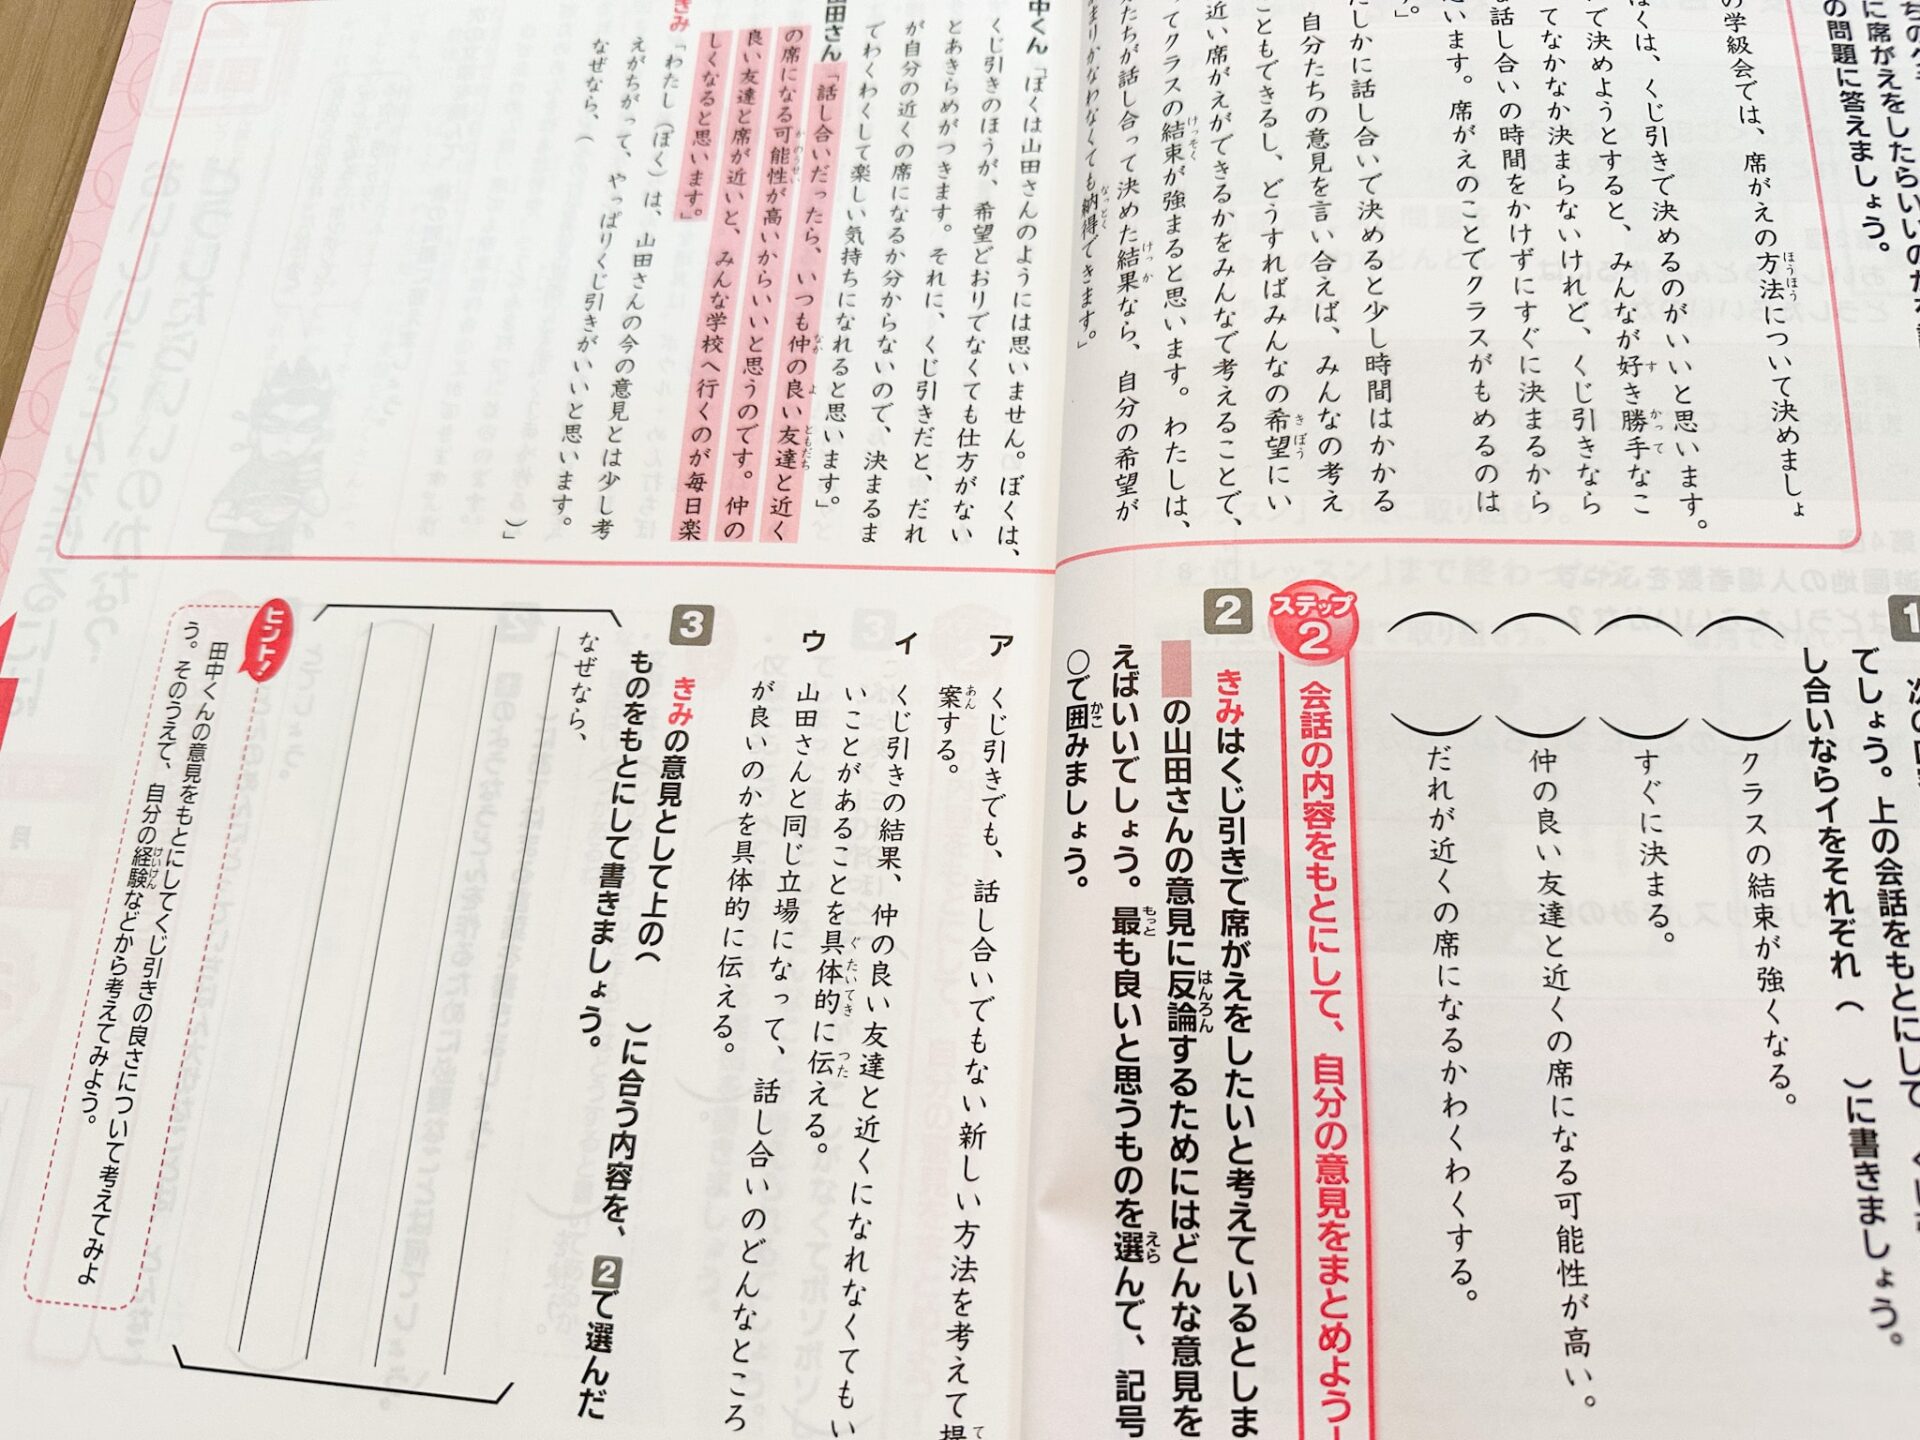 に席がえをしたらいいのだ
の問題に答えましょう。
の学級会では、席がえの方法について決めましょ
ぼくは、くじ引きで決めるのがいいと思います。
で決めようとすると、みんなが好き勝手なこ
てなかなか決まらないけれど、くじ引きなら
な話し合いの時間をかけずにすぐに決まるから
います。席がえのことでクラスがもめるのは
。」
たしかに話し合いで決めると少し時間はかかる
自分たちの意見を言い合えば、みんなの考え
こともできるし、どうすればみんなの希望にい
近い席がえができるかをみんなで考えることで、
てクラスの結束が強まると思います。わたしは、
たちが話し合って決めた結果なら、自分の希望が
まりかなわなくても納得できます。」
中くん「ぼくは山田さんのようには思いません。ぼくは、
くじ引きのほうが、希望どおりでなくても仕方がない
とあきらめがつきます。それに、くじ引きだと、だれ
が自分の近くの席になるか分からないので、決まるま
でわくわくして楽しい気持ちになれると思います。」
田さん「話し合いだったら、いつも仲の良い友達と近く
の席になる可能性が高いからいいと思うのです。仲の
良い友達と席が近いと、みんな学校へ行くのが毎日楽
しくなると思います。」
きみ「わたし（ぼく）は、山田さんの今の意見とは少し考
えがちがって、やっぱりくじ引きがいいと思います。
なぜなら、（　　）」
1
でしょう。上の会話をもとにして、
し合いならイをそれぞれ（　　）に書きましょう。
（　　）クラスの結束が強くなる。
（　　）すぐに決まる。
（　　）仲の良い友達と近くの席になる可能性が高い。
（　　）だれが近くの席になるかわくわくする。
ステップ2 会話の内容をもとにして、自分の意見をまとめよう
2 きみはくじ引きで席がえをしたいと考えているとしま
の山田さんの意見に反論するためにはどんな意見を
えばいいでしょう。最も良いと思うものを選んで、記号
○で囲みましょう。
ア くじ引きでも、話し合いでもない新しい方法を考えて提
案する。
イ くじ引きの結果、仲の良い友達と近くになれなくてもい
いことがあることを具体的に伝える。
ウ 山田さんと同じ立場になって、話し合いのどんなところ
が良いのかを具体的に伝える。
3 きみの意見として上の（　　）に合う内容を、2で選んだ
ものをもとにして書きましょう。
なぜなら、
ヒント！
田中くんの意見をもとにしてくじ引きの良さについて考えてみよ
う。そのうえで、自分の経験などから考えてみよう。